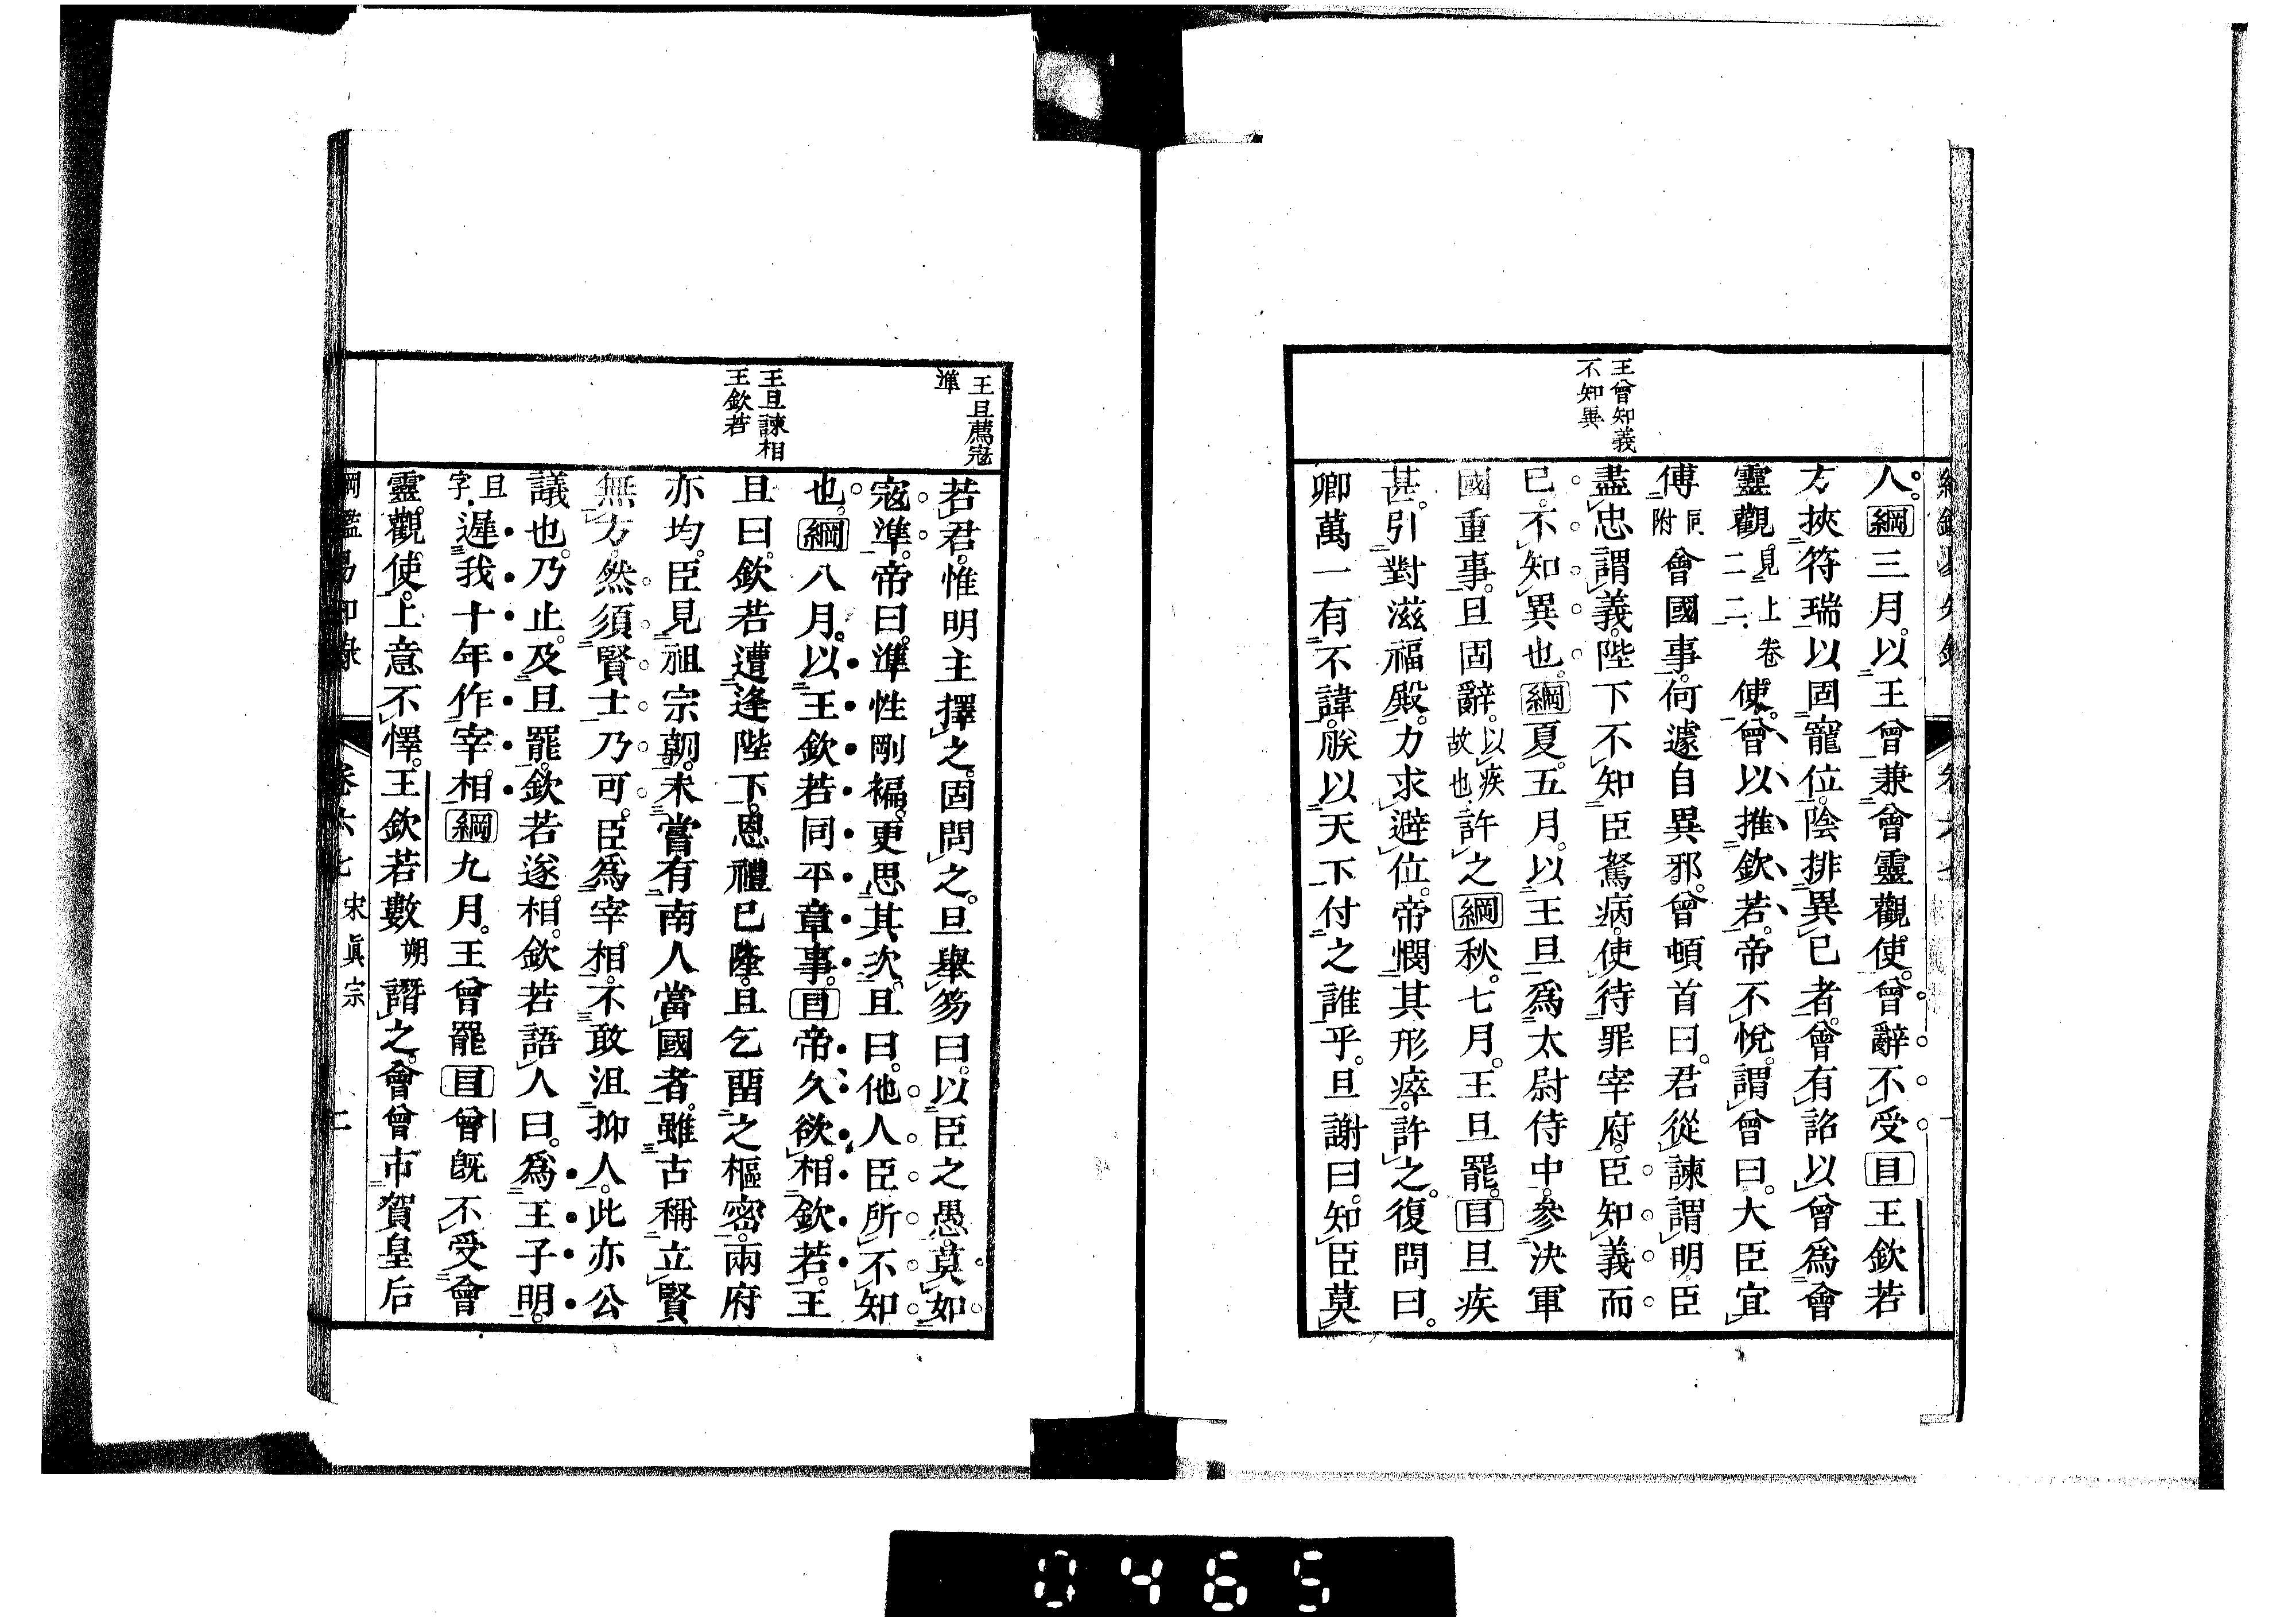 王曾知義
不知異
人。綱三月。以王曾兼會靈觀使。曾辭不受。目王欽若
方挾符瑞以固寵位。陰排異已者。曾有詔以曾爲會
靈觀。見上卷二二。使。曾以推欽若。帝不悅。謂曾曰。大臣宜
傅附會國事。何遽自異邪。曾頓首曰。君從諫謂明。臣
盡忠謂義。陛下不知臣駑病。使待罪宰府。臣知義而
已。不知異也。綱夏。五月。以王旦爲太尉侍中。參決軍
國重事。旦固辭。以疾故也。許之綱秋。七月。王旦罷。目旦疾
甚。引對滋福殿。力求避位。帝憫其形瘁。許之。復問曰。
卿萬一有不諱。朕以天下付之誰乎。旦謝曰。知臣莫
王旦薦寇
準
王旦諫相
王欽若
若君。惟明主擇之。固問之。旦舉笏曰。以臣之愚。莫如
寇準。帝曰。準性剛褊。更思其次。旦曰。他人。臣所不知
也。綱八月。以王欽若同平章事。目帝久欲相欽若。王
旦曰。欽若遭逢陛下。恩禮已隆。且乞留之樞密。兩府
亦均。臣見祖宗朝。未嘗有南人當國者。雖古稱立賢
無方。然須賢士乃可。臣爲宰相。不敢沮抑人。此亦公
議也。乃止。及旦罷。欽若遂相。欽若語人曰。爲王子明。
旦字。遲我十年作宰相。綱九月。王曾罷目曾既不受會
靈觀使。上意不懌。王欽若數朔譖之。會曾市賀皇后
綱鑑易知錄 卷六七 宋眞宗 二
0465